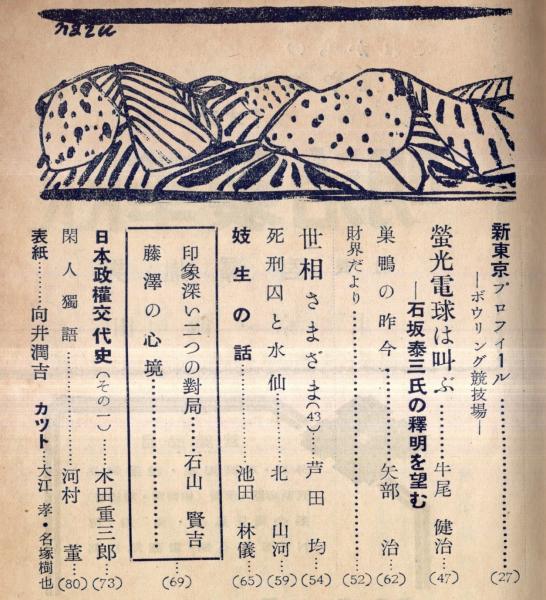 新東京プロフィール……………(27)
―ボウリング競技場―
螢光電球は叫ぶ……牛尾 健治…(47)
―石坂泰三氏の釋明を望む
巣鴨の昨今……矢部 治…(62)
財界だより……………(52)
世相さまざま(43)……芦田 均…(54)
死刑囚と水仙……北 山河…(59)
妓生の話……池田 林儀…(65)
印象深い二つの對局……石山 賢吉
藤澤の心境……………(69)
日本政權交代史(その一)……木田重三郎…(73)
閑人獨語……河村 菫…(80)
表紙……向井潤吉 カット・大江 孝・名塚樹也